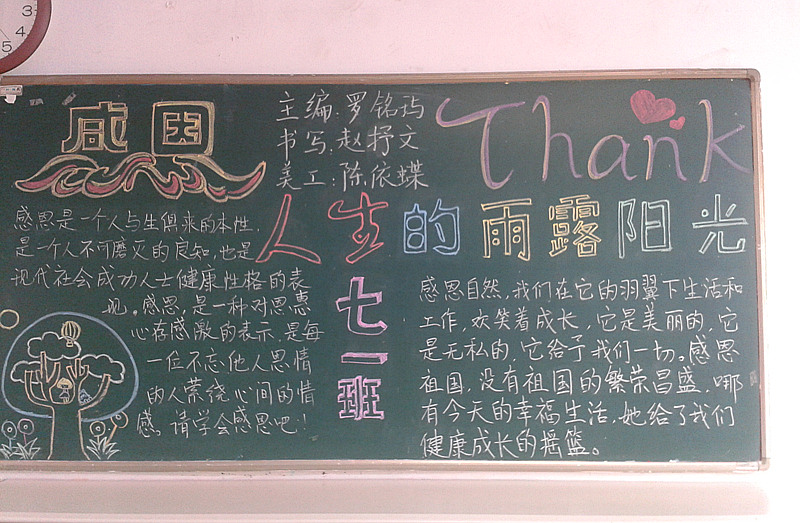 3
4
5
感恩
主编:罗铭玛
书写:赵抒文
美工:陈依蝶
Thank
人生的雨露阳光
感恩是一个人与生俱来的本性,
是一个人不可磨灭的良知,也是
现代社会成功人士健康性格的表
现。感恩,是一种对恩惠
心存感激的表示,是每
一位不忘他人恩情
的人萦绕心间的情
感。请学会感恩吧!
七一班
感恩自然,我们在它的羽翼下生活和
工作,欢笑着成长,它是美丽的,它
是无私的,它给予我们一切。感恩
祖国,没有祖国的繁荣昌盛,哪
有今天的幸福生活,她给了我们
健康成长的摇篮。